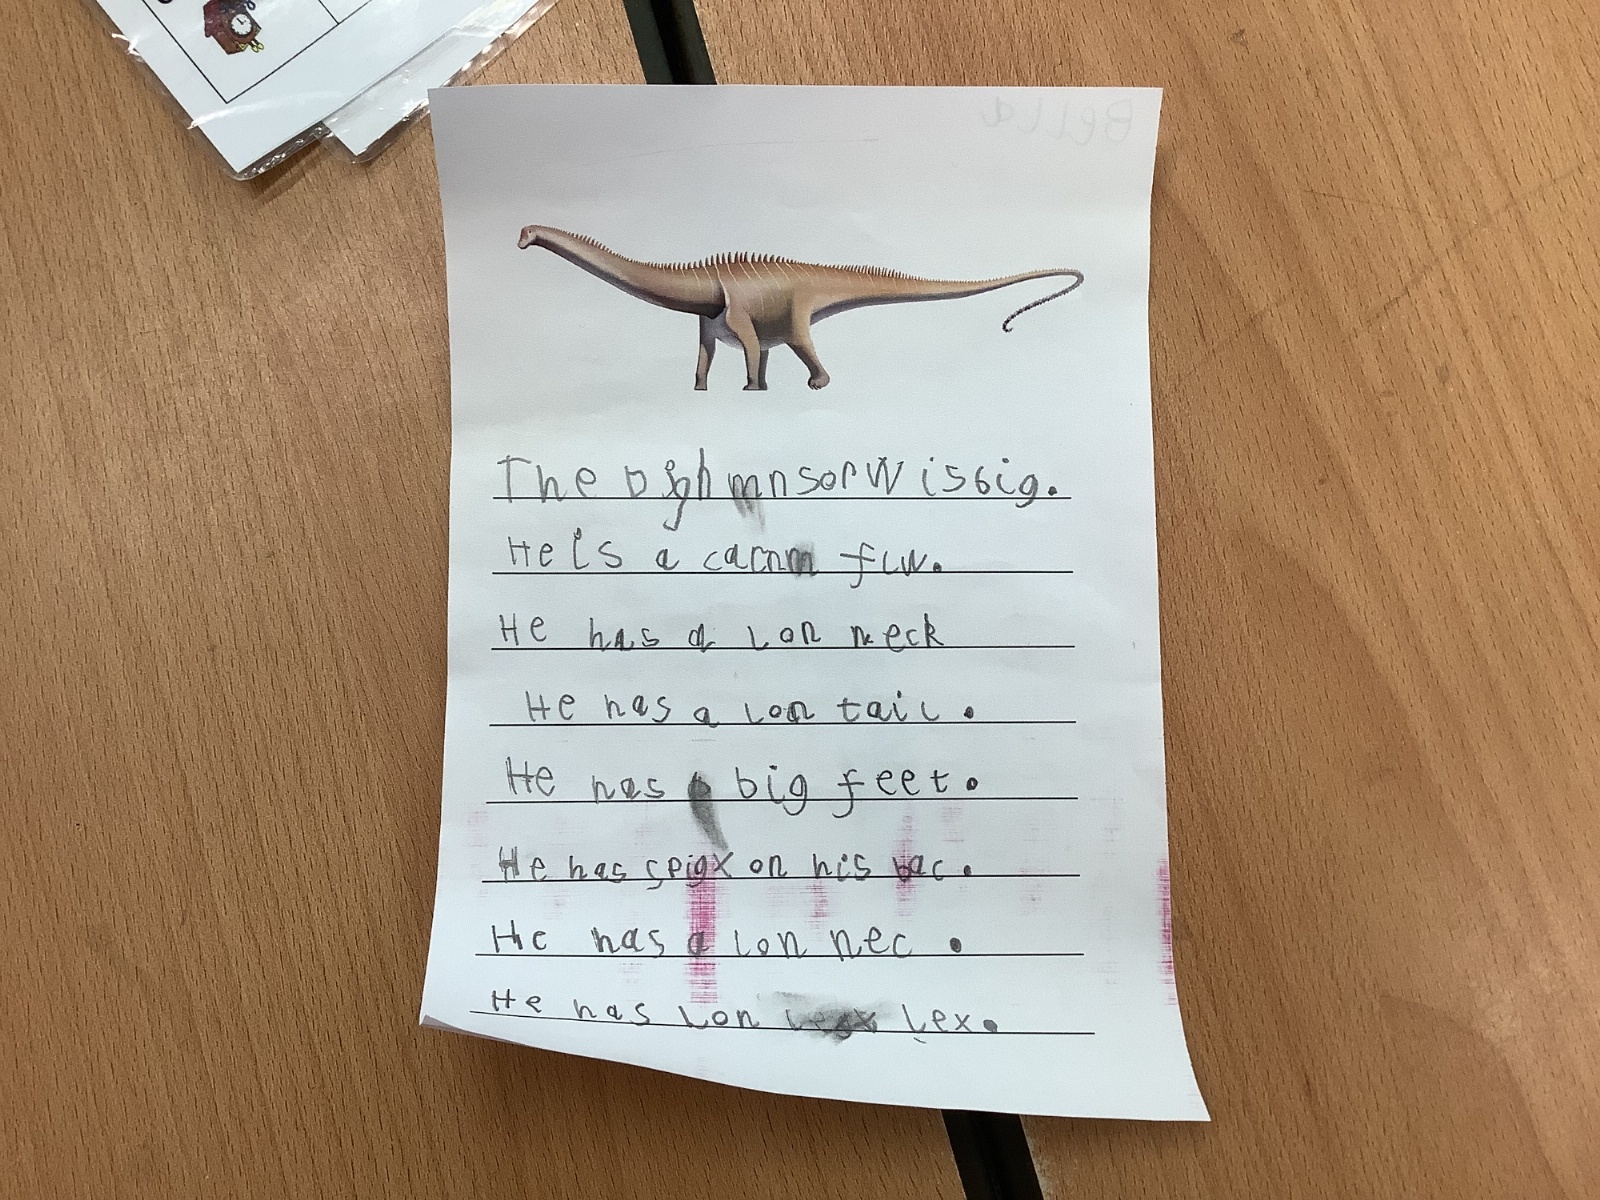 Bella
The is big.
He is a flw.
He has a lon neck
He has a lon tail.
He has big feet.
He has speigx on his bac.
He has a lon nec .
He has lon lex.